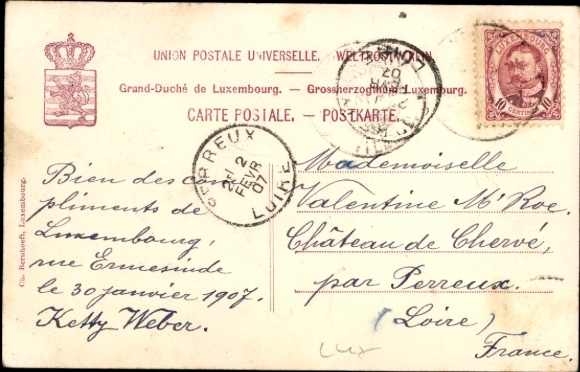 UNION POSTALE UNIVERSELLE. — WELTPOSTVEREIN.
Grand-Duché de Luxembourg. — Grossherzogthum Luxemburg.
CARTE POSTALE. — POSTKARTE.
LUXEMBOURG
10 CENTIMES 10
PERREUX
2E
2
FEVR
07
LOIRE
07
Ch. Bernhoeft, Luxembourg.
Bien des com
pliments de
Luxembourg,
rue Ermesinde
le 30 janvier 1907.
Ketty Weber.
Mademoiselle
Valentine Mc Roe.
Château de Chervé,
par Perreux.
(Loire)
France.
Lux